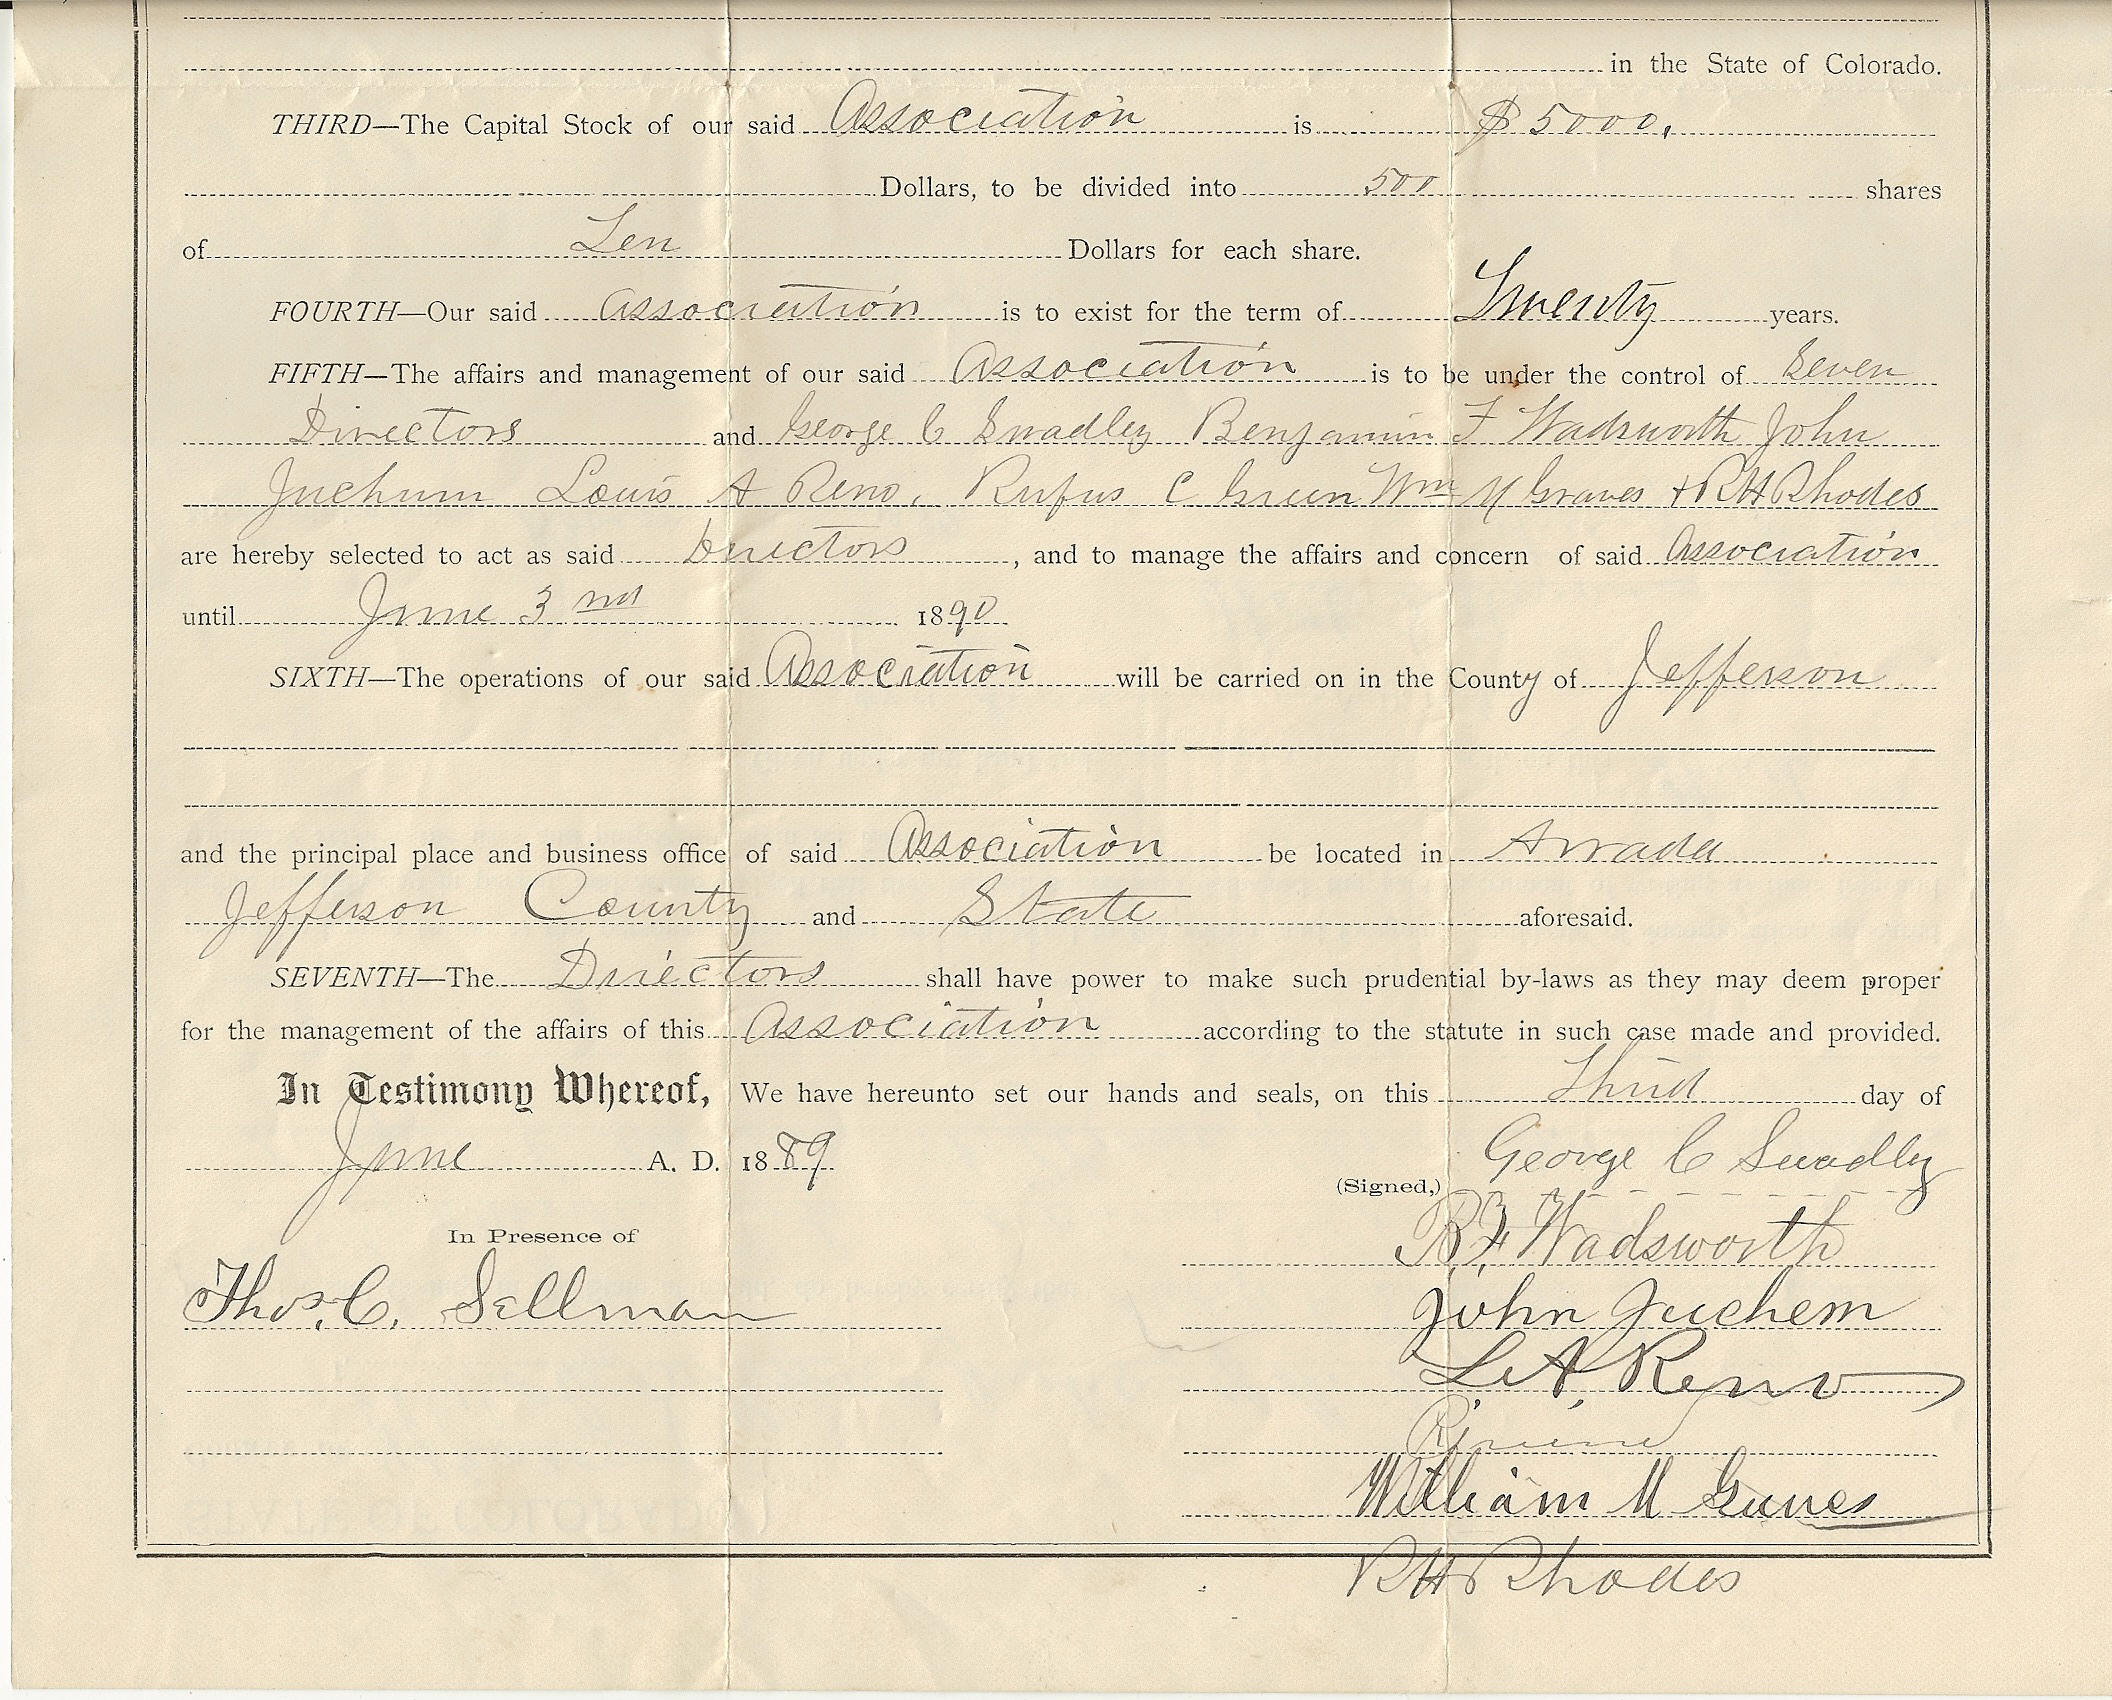 in the State of Colorado.
THIRD—The Capital Stock of our said Association is $5000.
Dollars, to be divided into 500 shares
of Ten Dollars for each share.
FOURTH—Our said Association is to exist for the term of Twenty years.
FIFTH—The affairs and management of our said Association is to be under the control of Seven
Directors and George C Swadley Benjamin F Wadsworth John
Juchum Louis A Reno, Rufus C Green Wm M Graves + R H Rhodes
are hereby selected to act as said Directors, and to manage the affairs and concern of said Association
until June 3nd 1890
SIXTH—The operations of our said Association will be carried on in the County of Jefferson
and the principal place and business office of said Association be located in Arvada
Jefferson County and State aforesaid.
SEVENTH—The Directors shall have power to make such prudential by-laws as they may deem proper
for the management of the affairs of this Association according to the statute in such case made and provided.
In Testimony Whereof, We have hereunto set our hands and seals, on this Third day of
June A. D. 1889
George C Swadley
(Signed,)
B. F. Wadsworth
In Presence of
Thos. C. Sellman
John Juchem
L. A. Reno
William M Graves
R H Rhodes